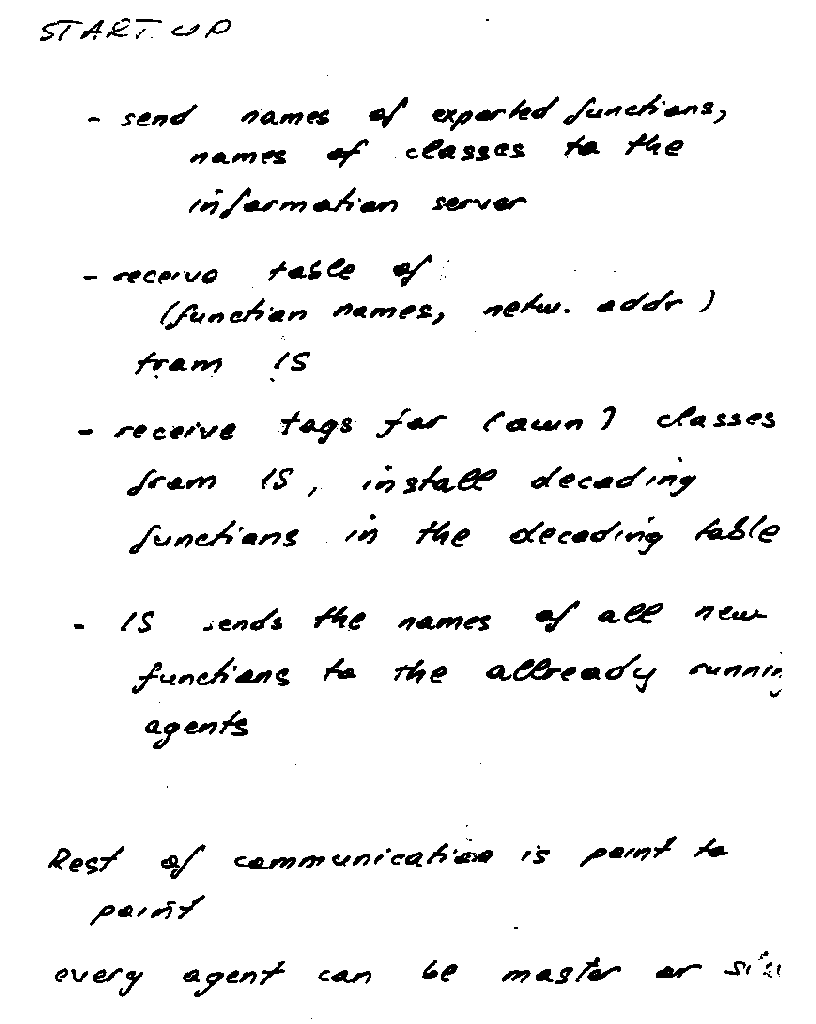 START UP
- send names of exported functions,
names of classes to the
information server
- receive table of
(function names, netw. addr)
from IS
- receive tags for (own) classes
from IS, install decoding
functions in the decoding table
- IS sends the names of all new
functions to the allready
agents
Rest of communication is point to
point
every agent can be master or